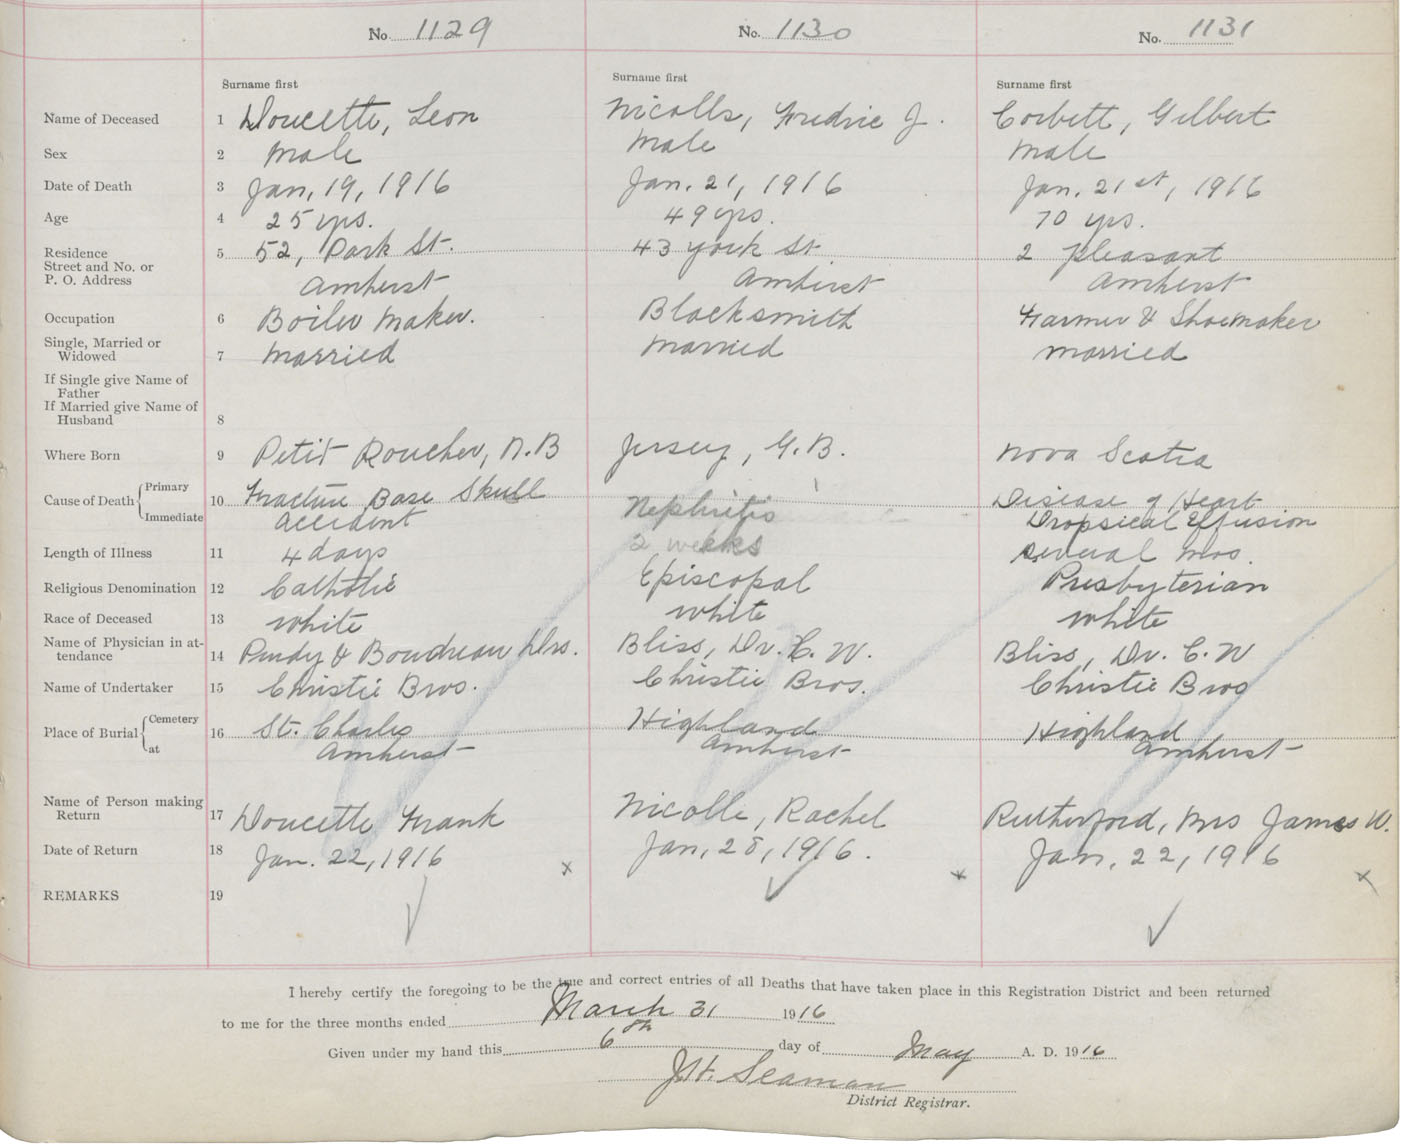 No. 1129 No. 1130 No. 1131
Surname first Surname first Surname first
Name of Deceased 1 Doucette, Leon Nicolls, Fredric J. Corbett, Gilbert
Sex 2 Male Male Male
Date of Death 3 Jan, 19, 1916 Jan. 21, 1916 Jan. 21st, 1916
Age 4 25 yrs. 49 yrs. 70 yrs.
Residence
Street and No. or 5 52, Park St. 43 York St. 2 Pleasant
P. O. Address Amherst Amherst Amherst
Occupation 6 Boiler Maker. Blacksmith Farmer & Shoemaker
Single, Married or
Widowed 7 Married Married Married
If Single give Name of
Father
If Married give Name of
Husband 8
Where Born 9 Petit Roucher, N.B Jersey, G.B. Nova Scotia
Cause of Death Primary 10 Fracture Base Skull Nephritis Disease of Heart
Immediate accident Dropsical Effusion
Length of Illness 11 4 days 2 weeks several mos.
Religious Denomination 12 Catholic Episcopal Presbyterian
Race of Deceased 13 white white white
Name of Physician in at-
tendance 14 Purdy & Boudreau Drs. Bliss, Dr. C. W. Bliss, Dr. C. W
Name of Undertaker 15 Christie Bros. Christie Bros. Christie Bros
Place of Burial Cemetery 16 St. Charles Highland Highland
at Amherst Amherst Amherst
Name of Person making
Return 17 Doucette Frank Nicolle, Rachel Rutherford, Mrs James W.
Date of Return 18 Jan. 22, 1916 x Jan, 28, 1916. x Jan, 22, 1916 x
REMARKS 19
I hereby certify the foregoing to be the true and correct entries of all Deaths that have taken place in this Registration District and been returned
to me for the three months ended March 31 1916
Given under my hand this 6th day of May A. D. 1916
J.H. Seaman
District Registrar.